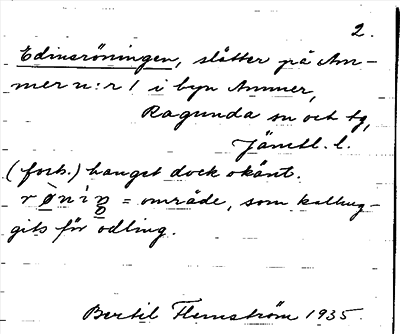 2.
Edinsröningen, slåtter på Am-
mer n:r 1 i byn Ammer,
Ragunda sn och tg,
Jämtl. l.
(forts.) hanget dock okänt.
rø̀níŋ = område, som kalhug-
gits för odling.
Bertil Flemström 1935.